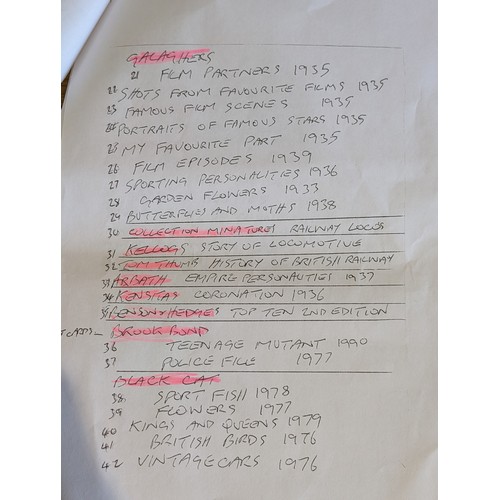 GALAGHERS
21 FILM PARTNERS 1935
22 SHOTS FROM FAVOURITE FILMS 1935
23 FAMOUS FILM SCENES 1935
24 PORTRAITS OF FAMOUS STARS 1935
25 MY FAVOURITE PART 1935
26 FILM EPISODES 1939
27 SPORTING PERSONALITIES 1936
28 GARDEN FLOWERS 1933
29 BUTTERFLIES AND MOTHS 1938
30 COLLECTION MINATURES RAILWAY LOCOS
31 KELLOGS STORY OF LOCOMOTIVE
32 TOM THUMB HISTORY OF BRITISH RAILWAY
33 ARBATH EMPIRE PERSONALITIES 1937
34 KENSITAS CORONATION 1936
35 BENSON & HEDGES TOP TEN 2ND EDITION
BROOK BOND
36 TEENAGE MUTANT 1990
37 POLICE FILE 1977
BLACK CAT
38 SPORT FISH 1978
39 FLOWERS 1977
40 KINGS AND QUEENS 1979
41 BRITISH BIRDS 1976
42 VINTAGE CARS 1976